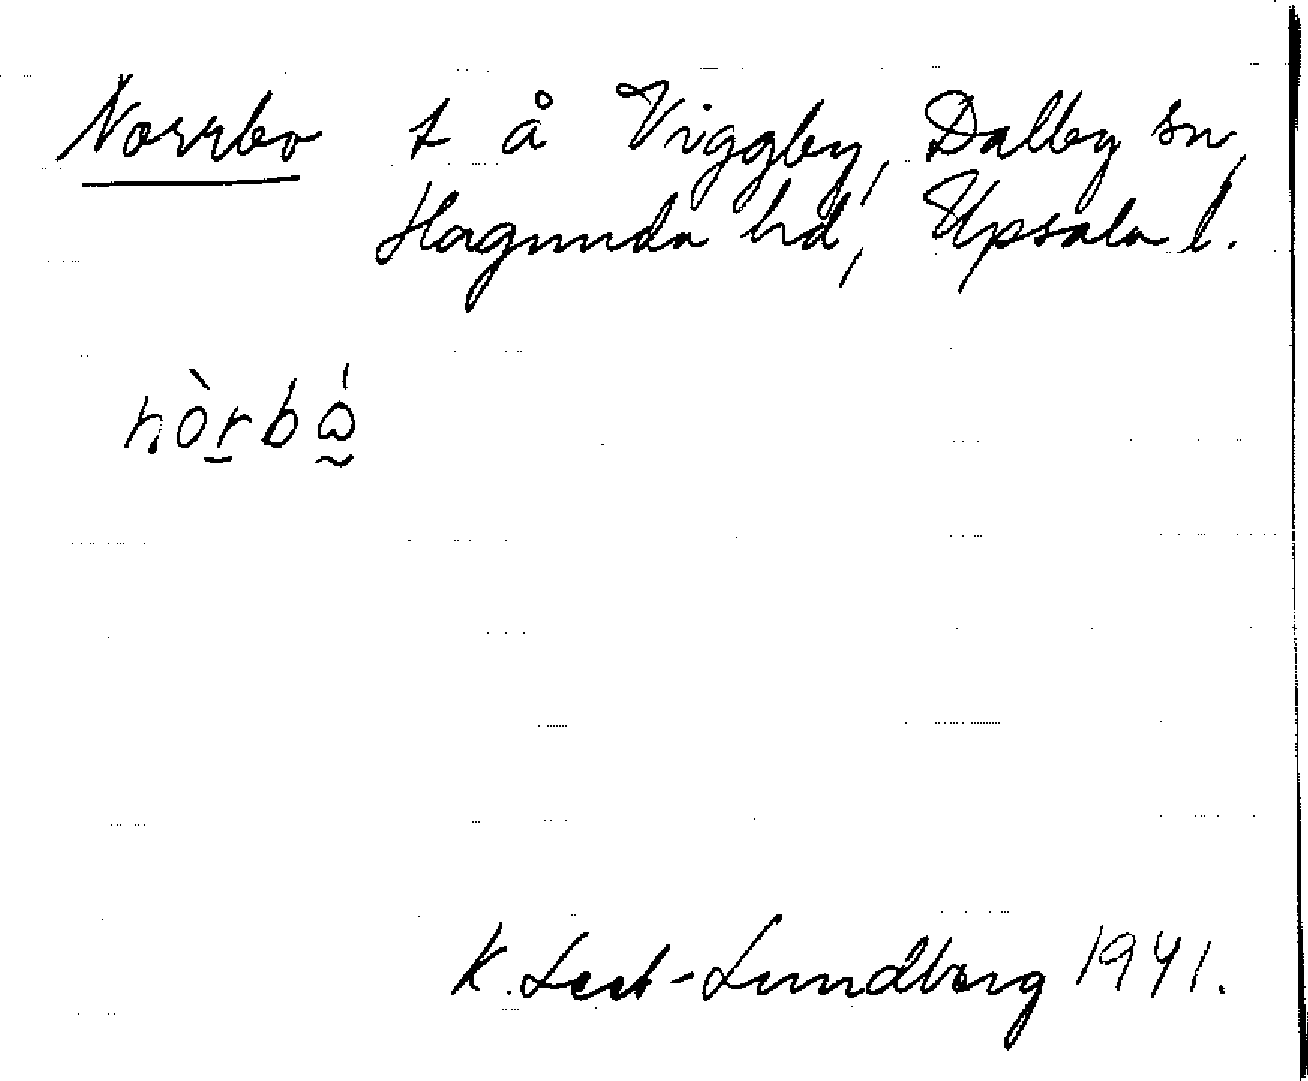 Norrbo t å Viggby, Dalby sn,
Hagunda hd, Upsala l.
nòrbω̊
K. Lech-Lundberg 1941.